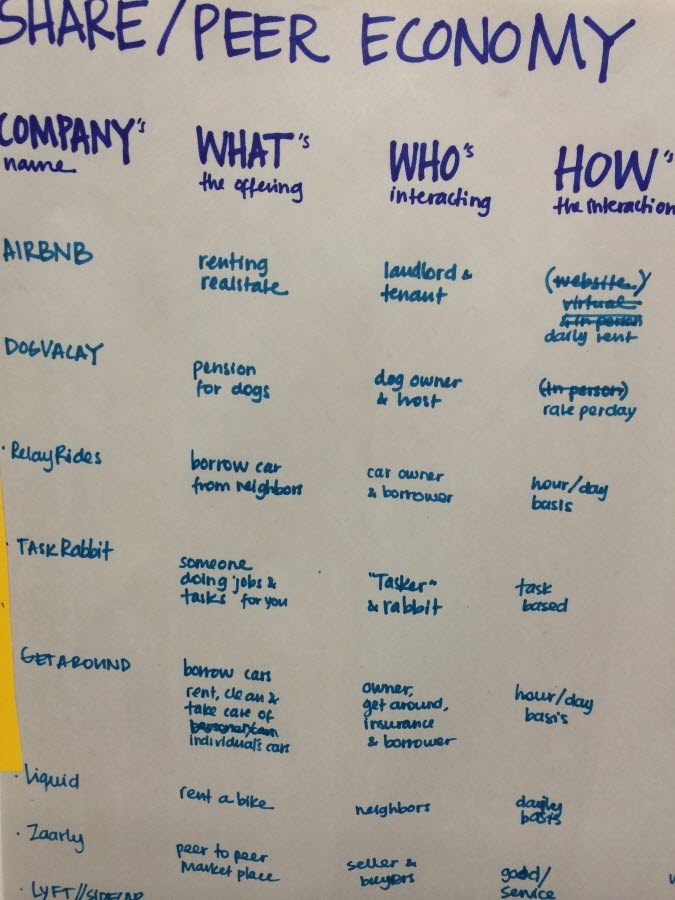 SHARE/PEER ECONOMY
COMPANY's
name
WHAT's
the offering
WHO's
interacting
HOW's
the interaction
AIRBNB
renting
realstate
landlord &
tenant
(website)
virtual
& in person
daily rent
DOGVACAY
pension
for dogs
dog owner
& host
(in person)
rate perday
· RelayRides
borrow car
from neighbors
car owner
& borrower
hour/day
basis
· TASK Rabbit
someone
doing jobs &
tasks for you
"Tasker"
& rabbit
task
based
GETAROUND
borrow cars
rent, clean &
take care of
individual's cars
owner,
get around,
insurance
& borrower
hour/day
basis
· Liquid
rent a bike
neighbors
daily
basis
· Zaarly
peer to peer
Market place
seller &
buyers
good/
service
· LYFT//SIDECAR